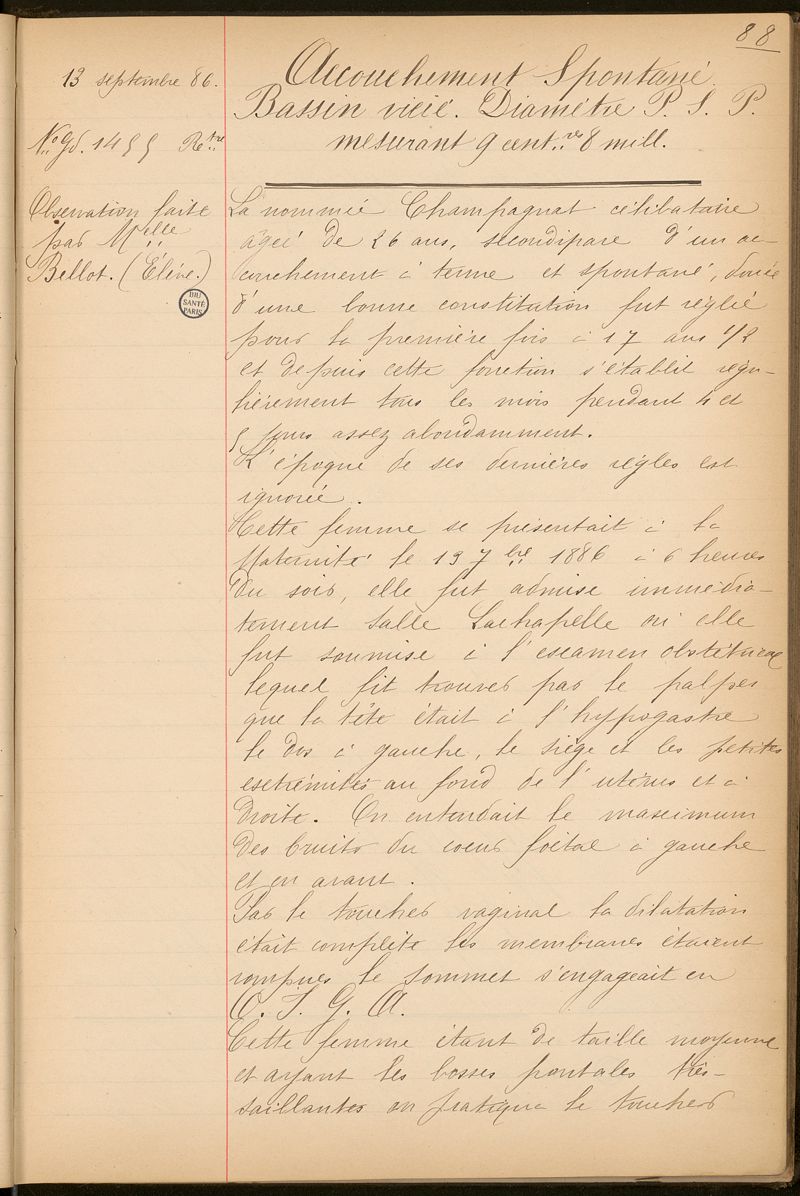 88
13 septembre 86.
Accouchement Spontané.
Bassin vicié. Diamètre P. S. P.
mesurant 9 cent.res 8 mill.
No Gd. 1455 Re.tre
Observation faite
par Melle
Bellot. (Élève.)
BIU
SANTÉ
PARIS
La nommée Champagnat célibataire
âgée de 26 ans, secondipare d'un ac-
couchement à terme et spontané, douée
d'une bonne constitution fut réglée
pour la première fois à 17 ans 1/2
et depuis cette fonction s'établit régu-
lièrement tous les mois pendant 4 et
5 jours assez abondamment.
L'époque de ses dernières règles est
ignorée.
Cette femme se présentait à la
Maternité le 13 7bre 1886 à 6 heures
du soir, elle fut admise immédia-
tement salle Lachapelle où elle
fut soumise à l'examen obstétrical
lequel fit trouver par le palper
que la tête était à l'hypogastre
le dos à gauche, le siège et les petites
extrémités au fond de l'utérus et à
droite. On entendait le maximum
des bruits du coeur foetal à gauche
et en avant.
Par le toucher vaginal la dilatation
était complète les membranes étaient
rompues le sommet s'engageait en
O. I. G. A.
Cette femme étant de taille moyenne
et ayant les bosses frontales très-
saillantes on pratique le toucher